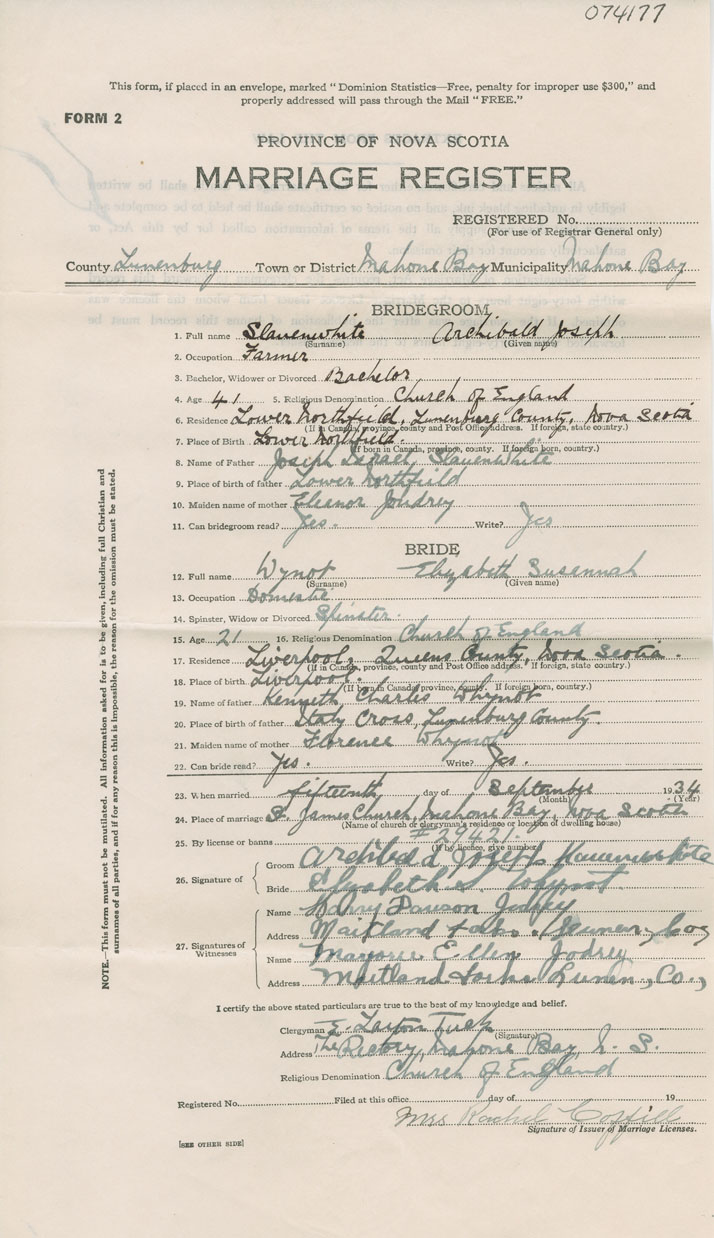 074177
This form, if placed in an envelope, marked "Dominion Statistics—Free, penalty for improper use $300," and
properly addressed will pass through the Mail "FREE."
FORM 2
PROVINCE OF NOVA SCOTIA
MARRIAGE REGISTER
REGISTERED No.
(For use of Registrar General only)
County Lunenburg Town or District Mahone Bay Municipality Mahone Bay
BRIDEGROOM
1. Full name Slauenwhite Archibald Joseph
(Surname) (Given name)
2. Occupation Farmer
3. Bachelor, Widower or Divorced Bachelor
4. Age 41 5. Religious Denomination Church of England
6. Residence Lower Northfield, Lunenburg County, Nova Scotia
(If in Canada, province, county and Post Office address. If foreign, state country.)
7. Place of Birth Lower Northfield.
(If born in Canada, province, county. If foreign born, country.)
8. Name of Father Joseph Israel Slauenwhite
9. Place of birth of father Lower Northfield
10. Maiden name of mother Eleanor Joudrey
11. Can bridegroom read? Yes. Write? Yes
BRIDE
12. Full name Wynot Elizabeth Susannah
(Surname) (Given name)
13. Occupation Domestic
14. Spinster, Widow or Divorced Spinster.
15. Age 21 16. Religious Denomination Church of England
17. Residence Liverpool, Queens County, Nova Scotia.
(If in Canada, province, county and Post Office address. If foreign, state country.)
18. Place of birth Liverpool.
(If born in Canada, province, county. If foreign born, country.)
19. Name of father Kenneth Charles Whynot
20. Place of birth of father Italy Cross, Lunenburg County.
21. Maiden name of mother Florence Whynot
22. Can bride read? Yes. Write? Yes.
23. When married fifteenth day of September 1934
(Month) (Year)
24. Place of marriage St. James Church, Mahone Bay, Nova Scotia
(Name of church or clergyman's residence or location of dwelling house)
25. By license or banns #29421.
(If by licence, give number)
26. Signature of
Groom Archibald Joseph
Bride Elizabeth S. Whynot.
27. Signatures of Witnesses
Name Harry Dawson Jodrey
Address Maitland Lunen, Co,
Name Marjorie Ellen Jodrey
Address Maitland Forks Lunen, Co.,
I certify the above stated particulars are true to the best of my knowledge and belief.
Clergyman E. Laxton Tuck
(Signature)
Address The Rectory, Mahone Bay, N. S.
Religious Denomination Church of England
Registered No. Filed at this office day of 19
Mrs Rachel
Signature of Issuer of Marriage Licenses.
[SEE OTHER SIDE]
NOTE.—This form must not be mutilated. All information asked for is to be given, including full Christian and
surnames of all parties, and if for any reason this is impossible, the reason for the omission must be stated.